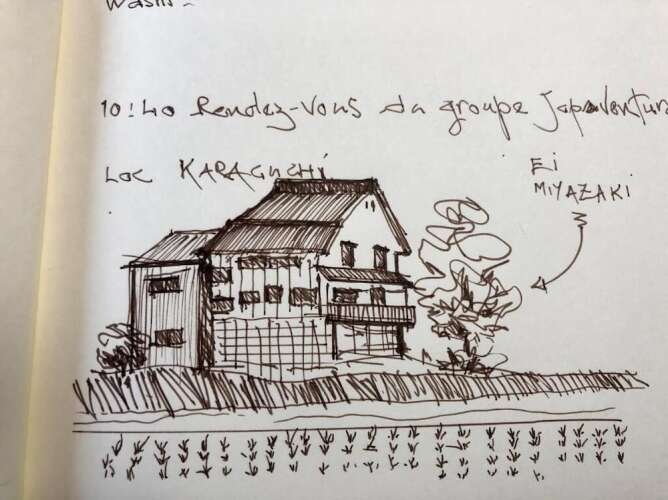 Washi-
10:40 Rendez-vous du groupe Japaventura
Lac KARAGUCHI
Ei
MIYAZAKI